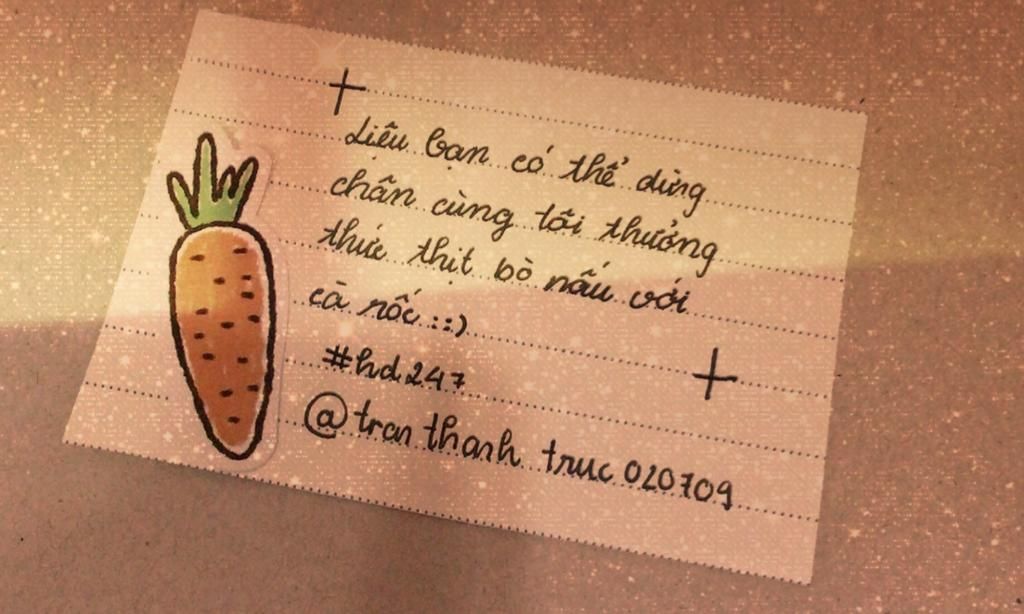 Liệu bạn có thể dừng
chân cùng tôi thưởng
thức thịt bò nấu với
cà rốt ::)
#hd247
@tran thanh truc 020709